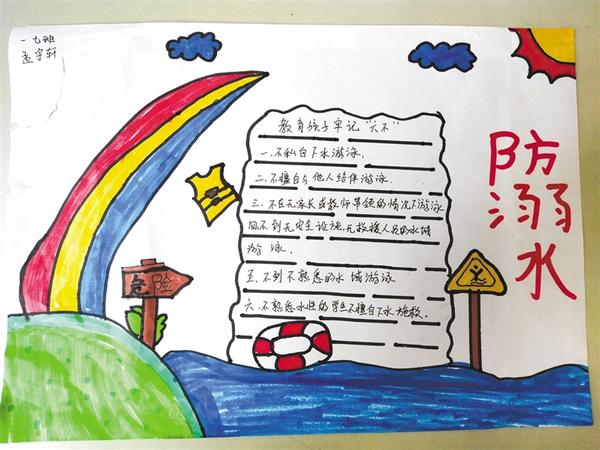 一七班
孟宇轩
防溺水
教育孩子牢记"六不"
一.不私自下水游泳.
二.不擅自与他人结伴游泳.
三.不在无家长或教师带领的情况下游泳
四.不到无安全设施,无救援人员的水域
游泳.
五.不到不熟悉的水域游泳
六.不熟悉水性的学生不擅自下水施救.
危险